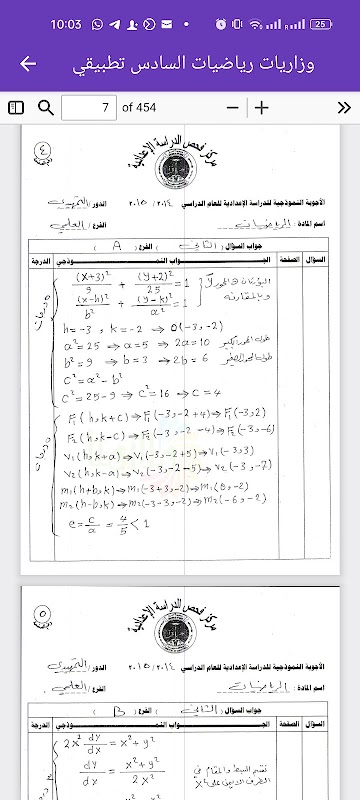 10:03
25
وزاريات رياضيات السادس تطبيقي
7 of 454
مركز فحص الدراسة الإعدادية
٤
الأجوبة النموذجية للدراسة الإعدادية للعام الدراسي ٢٠١٤ / ٢٠١٥ الدور / التمهيدي
اسم المادة : الرياضيات الفرع / العلمي
جواب السؤال ( الثاني ) الفرع ( A )
السؤال الصفحة الجـــواب النمـــوذجي الدرجة
(x+3)²/9 + (y+2)²/25 = 1
(x-h)²/b² + (y-k)²/a² = 1 وبالمقارنه
h=-3 , k=-2 ⇒ O(-3,-2)
a²=25 ⇒ a=5 ⇒ 2a=10 طول المحور الكبير
b²=9 ⇒ b=3 ⇒ 2b=6 طول المحور الصغير
c²=a²-b²
c²=25-9 ⇒ c²=16 ⇒ c=4
F₁(h,k+c) ⇒ F₁(-3,-2+4) ⇒ F₁(-3,2)
F₂(h,k-c) ⇒ F₂(-3,-2-4) ⇒ F₂(-3,-6)
V₁(h,k+a) ⇒ V₁(-3,-2+5) ⇒ V₁(-3,3)
V₂(h,k-a) ⇒ V₂(-3,-2-5) ⇒ V₂(-3,-7)
M₁(h+b,k) ⇒ M₁(-3+3,-2) ⇒ M₁(0,-2)
M₂(h-b,k) ⇒ M₂(-3-3,-2) ⇒ M₂(-6,-2)
e = c/a = 4/5 < 1
مركز فحص الدراسة الإعدادية
٥
الأجوبة النموذجية للدراسة الإعدادية للعام الدراسي ٢٠١٤ / ٢٠١٥ الدور / التمهيدي
اسم المادة : الرياضيات الفرع / العلمي
جواب السؤال ( الثاني ) الفرع ( B )
السؤال الصفحة الجـــواب النمـــوذجي الدرجة
2x² dy/dx = x²+y²
dy/dx = (x²+y²)/2x² نقسم البسط والمقام في
الطرف الايمن على x²